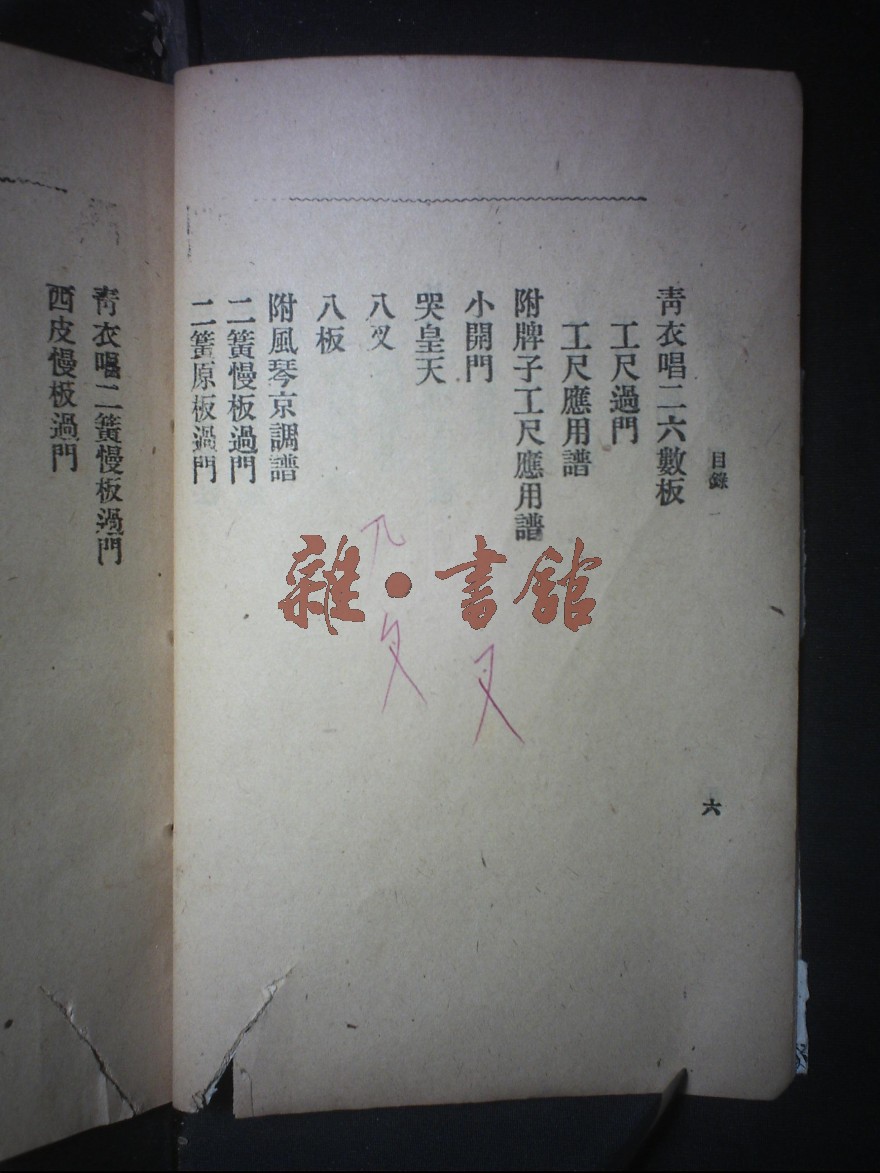 目錄 一
六
靑衣唱二六數板
工尺過門
工尺應用譜
附牌子工尺應用譜
小開門
哭皇天
八叉
八板
附風琴京調譜
二簧慢板過門
二簧原板過門
靑衣唱二簧慢板過門
西皮慢板過門
雜·書館
叉